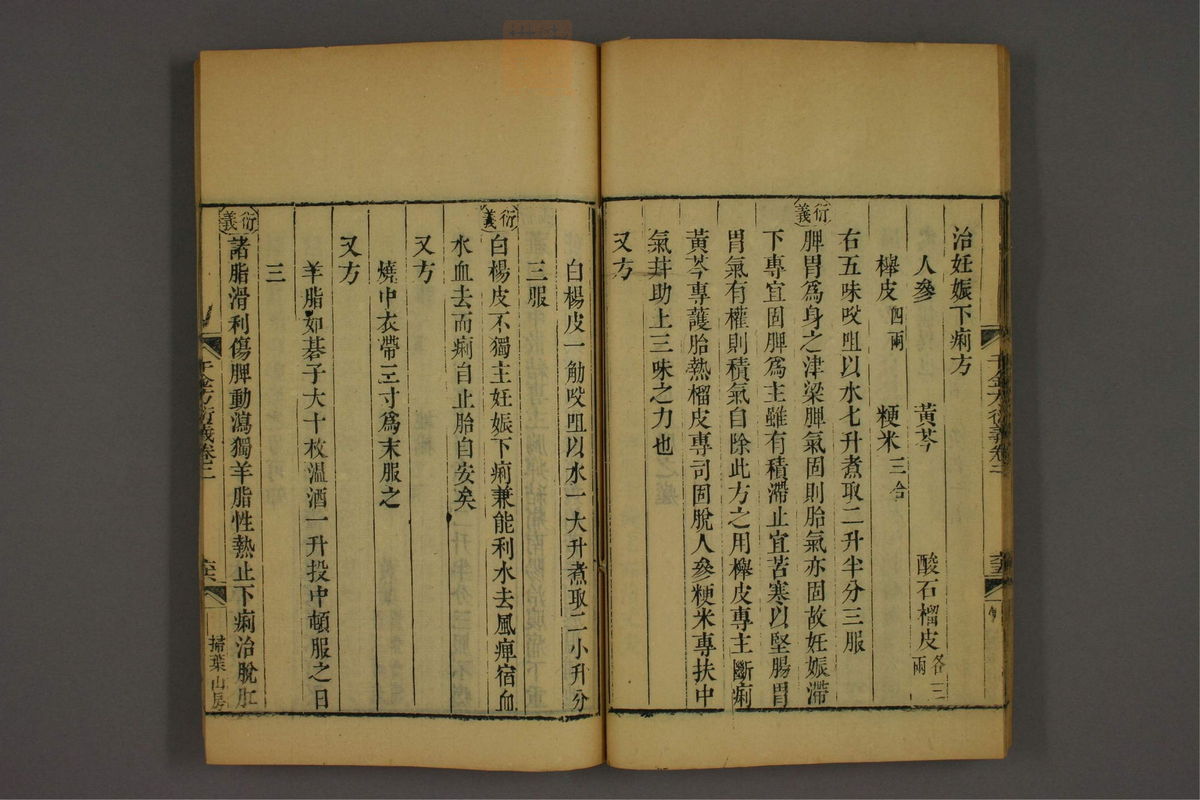 治妊娠下痢方
人參 黃芩 酸石榴皮各三兩
櫸皮四兩 粳米三合
右五味㕮咀以水七升煮取二升半分三服
衍義 脾胃爲身之津梁脾氣固則胎氣亦固故妊娠滯
下專宜固脾爲主雖有積滯止宜苦寒以堅腸胃
胃氣有權則積氣自除此方之用櫸皮專主斷痢
黃芩專護胎熱榴皮專司固脫人參粳米專扶中
氣幷助上三味之力也
又方
白楊皮一觔㕮咀以水一大升煮取二小升分
三服
衍義 白楊皮不獨主妊娠下痢兼能利水去風痺宿血
水血去而痢自止胎自安矣
又方
燒中衣帶三寸爲末服之
又方
羊脂如碁子大十枚溫酒一升投中頓服之日
三
衍義 諸脂滑利傷脾動瀉獨羊脂性熱止下痢治脫肛
千金方衍義卷二
掃葉山房